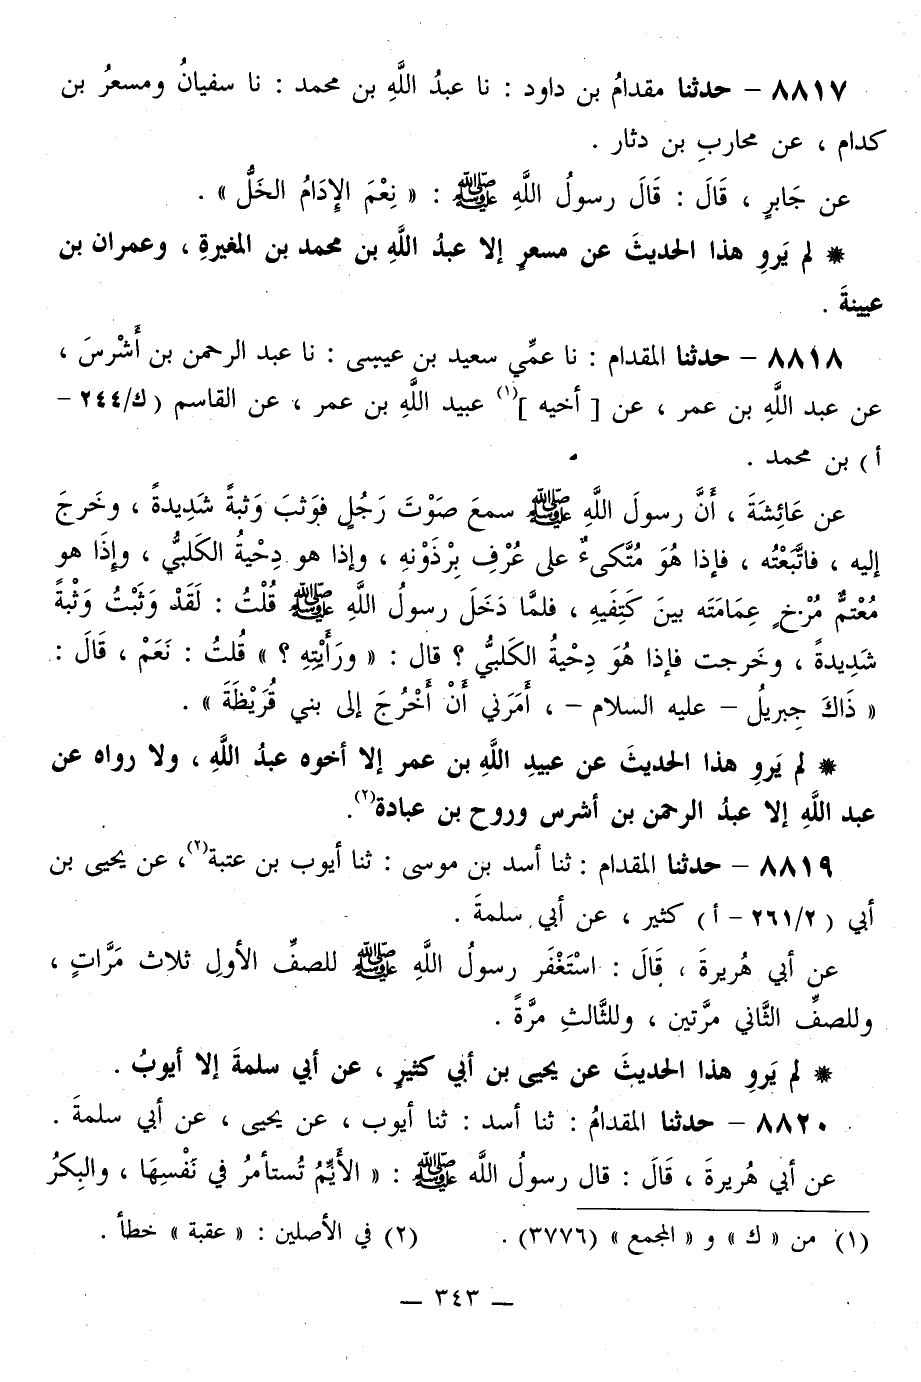 ٨٨١٧ - حدثنا مقدامُ بن داود : نا عبدُ اللَّهِ بن محمد : نا سفيانُ ومسعرُ بن
كدام ، عن محاربِ بن دثار .
عن جَابرٍ ، قَالَ : قَالَ رسولُ اللَّهِ ﷺ : « نِعْمَ الإِدَامُ الخَلُّ » .
* لم يَروِ هذا الحديثَ عن مسعرٍ إلا عبدُ اللَّهِ بن محمد بن المغيرةِ ، وعمران بن
عيينةَ .
٨٨١٨ - حدثنا المقدام : نا عمِّي سعيد بن عيسى : نا عبد الرحمن بن أَشْرسَ ،
عن عبد اللَّهِ بن عمر ، عن [ أخيه ](١) عبيد اللَّهِ بن عمر ، عن القاسم (ك/٢٤٤ -
أ) بن محمد .
عن عَائِشَةَ ، أَنَّ رسولَ اللَّهِ ﷺ سمعَ صَوْتَ رَجُلٍ فوَثبَ وَثبةً شَدِيدةً ، وخَرجَ
إليه ، فاتَّبَعْتُه ، فإذا هُوَ مُتَّكىءٌ على عُرْفِ بِرْذَونهِ ، وإذا هو دِحْيةُ الكَلبيُّ ، وإِذَا هو
مُعْتمٌّ مُرْخٍ عِمَامَته بينَ كَتِفَيهِ ، فلمَّا دَخَلَ رسولُ اللَّهِ ﷺ قُلْتُ : لَقَدْ وَثَبْتُ وَثْبةً
شَدِيدةً ، وخَرجت فإذا هُوَ دِحْيةُ الكَلبيُّ ؟ قال : « ورَأَيْتِهِ ؟ » قُلتُ : نَعَمْ ، قَالَ :
« ذَاكَ جِبريلُ - عليه السلام - ، أَمَرَني أَنْ أَخْرُجَ إلى بني قُرَيْظَةَ » .
* لم يَروِ هذا الحديثَ عن عبيدِ اللَّهِ بن عمر إلا أخوه عبدُ اللَّهِ ، ولا رواه عن
عبد اللَّهِ إلا عبدُ الرحمن بن أشرس وروح بن عبادة(٢).
٨٨١٩ - حدثنا المقدام : ثنا أسد بن موسى : ثنا أيوب بن عتبة(٢)، عن يحيى بن
أبي (٢٦١/٢ - أ) كثير ، عن أبي سلمةَ .
عن أبي هُريرةَ ، قَالَ : اسْتَغْفَر رسولُ اللَّهِ ﷺ للصفِّ الأولِ ثلاث مَرَّاتٍ ،
وللصفِّ الثَّاني مرَّتين ، وللثَّالثِ مرَّةً .
* لم يَروِ هذا الحديثَ عن يحيى بن أبي كثيرٍ ، عن أبي سلمةَ إلا أيوبُ .
٨٨٢٠ - حدثنا المقدامُ : ثنا أسد : ثنا أيوب ، عن يحيى ، عن أبي سلمةَ .
عن أبي هُريرةَ ، قَالَ : قال رسولُ اللَّه ﷺ : « الأَيِّمُ تُستأمرُ في نَفْسِهَا ، والبِكرُ
(١) من « ك » و « المجمع » (٣٧٧٦) . (٢) في الأصلين : « عقبة » خطأ .
— ٣٤٣ —